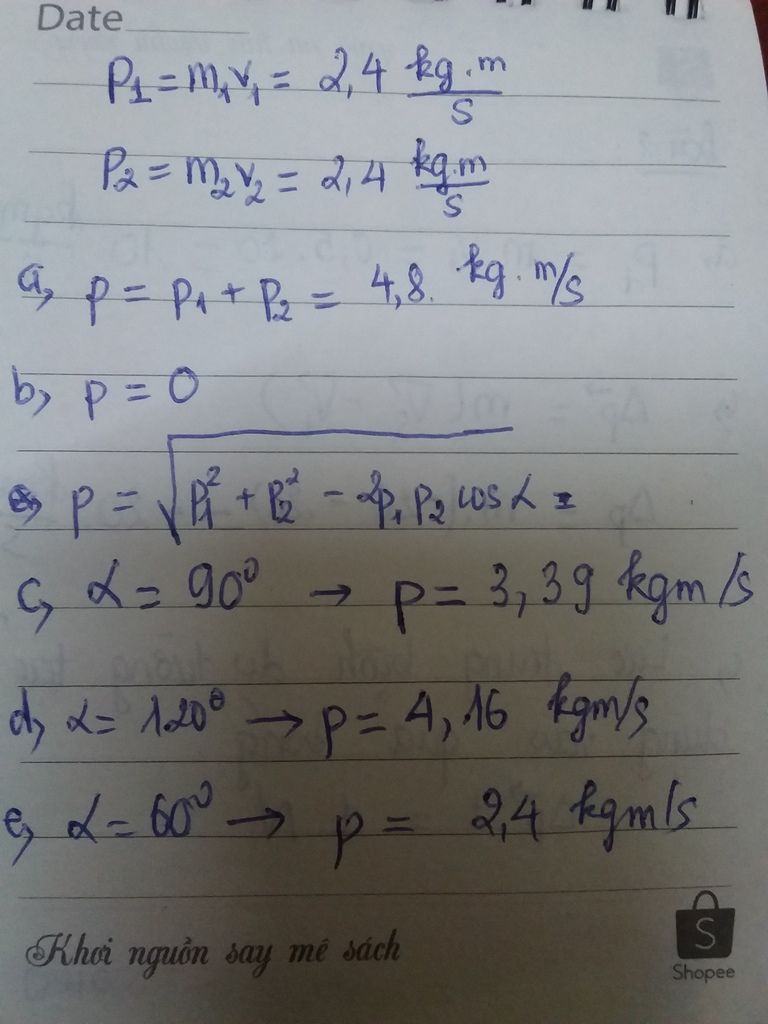 Date
P1 = m1v1 = 2,4 kg.m/s
P2 = m2v2 = 2,4 kg.m/s
a, p = p1 + p2 = 4,8. kg.m/s
b, p = 0
p = √(p1² + p2² - 2p1p2 cos α =
c, α = 90° → p = 3,39 kgm/s
d, α = 120° → p = 4,16 kgm/s
e, α = 60° → p = 2,4 kgm/s
Khơi nguồn say mê sách
S
Shopee